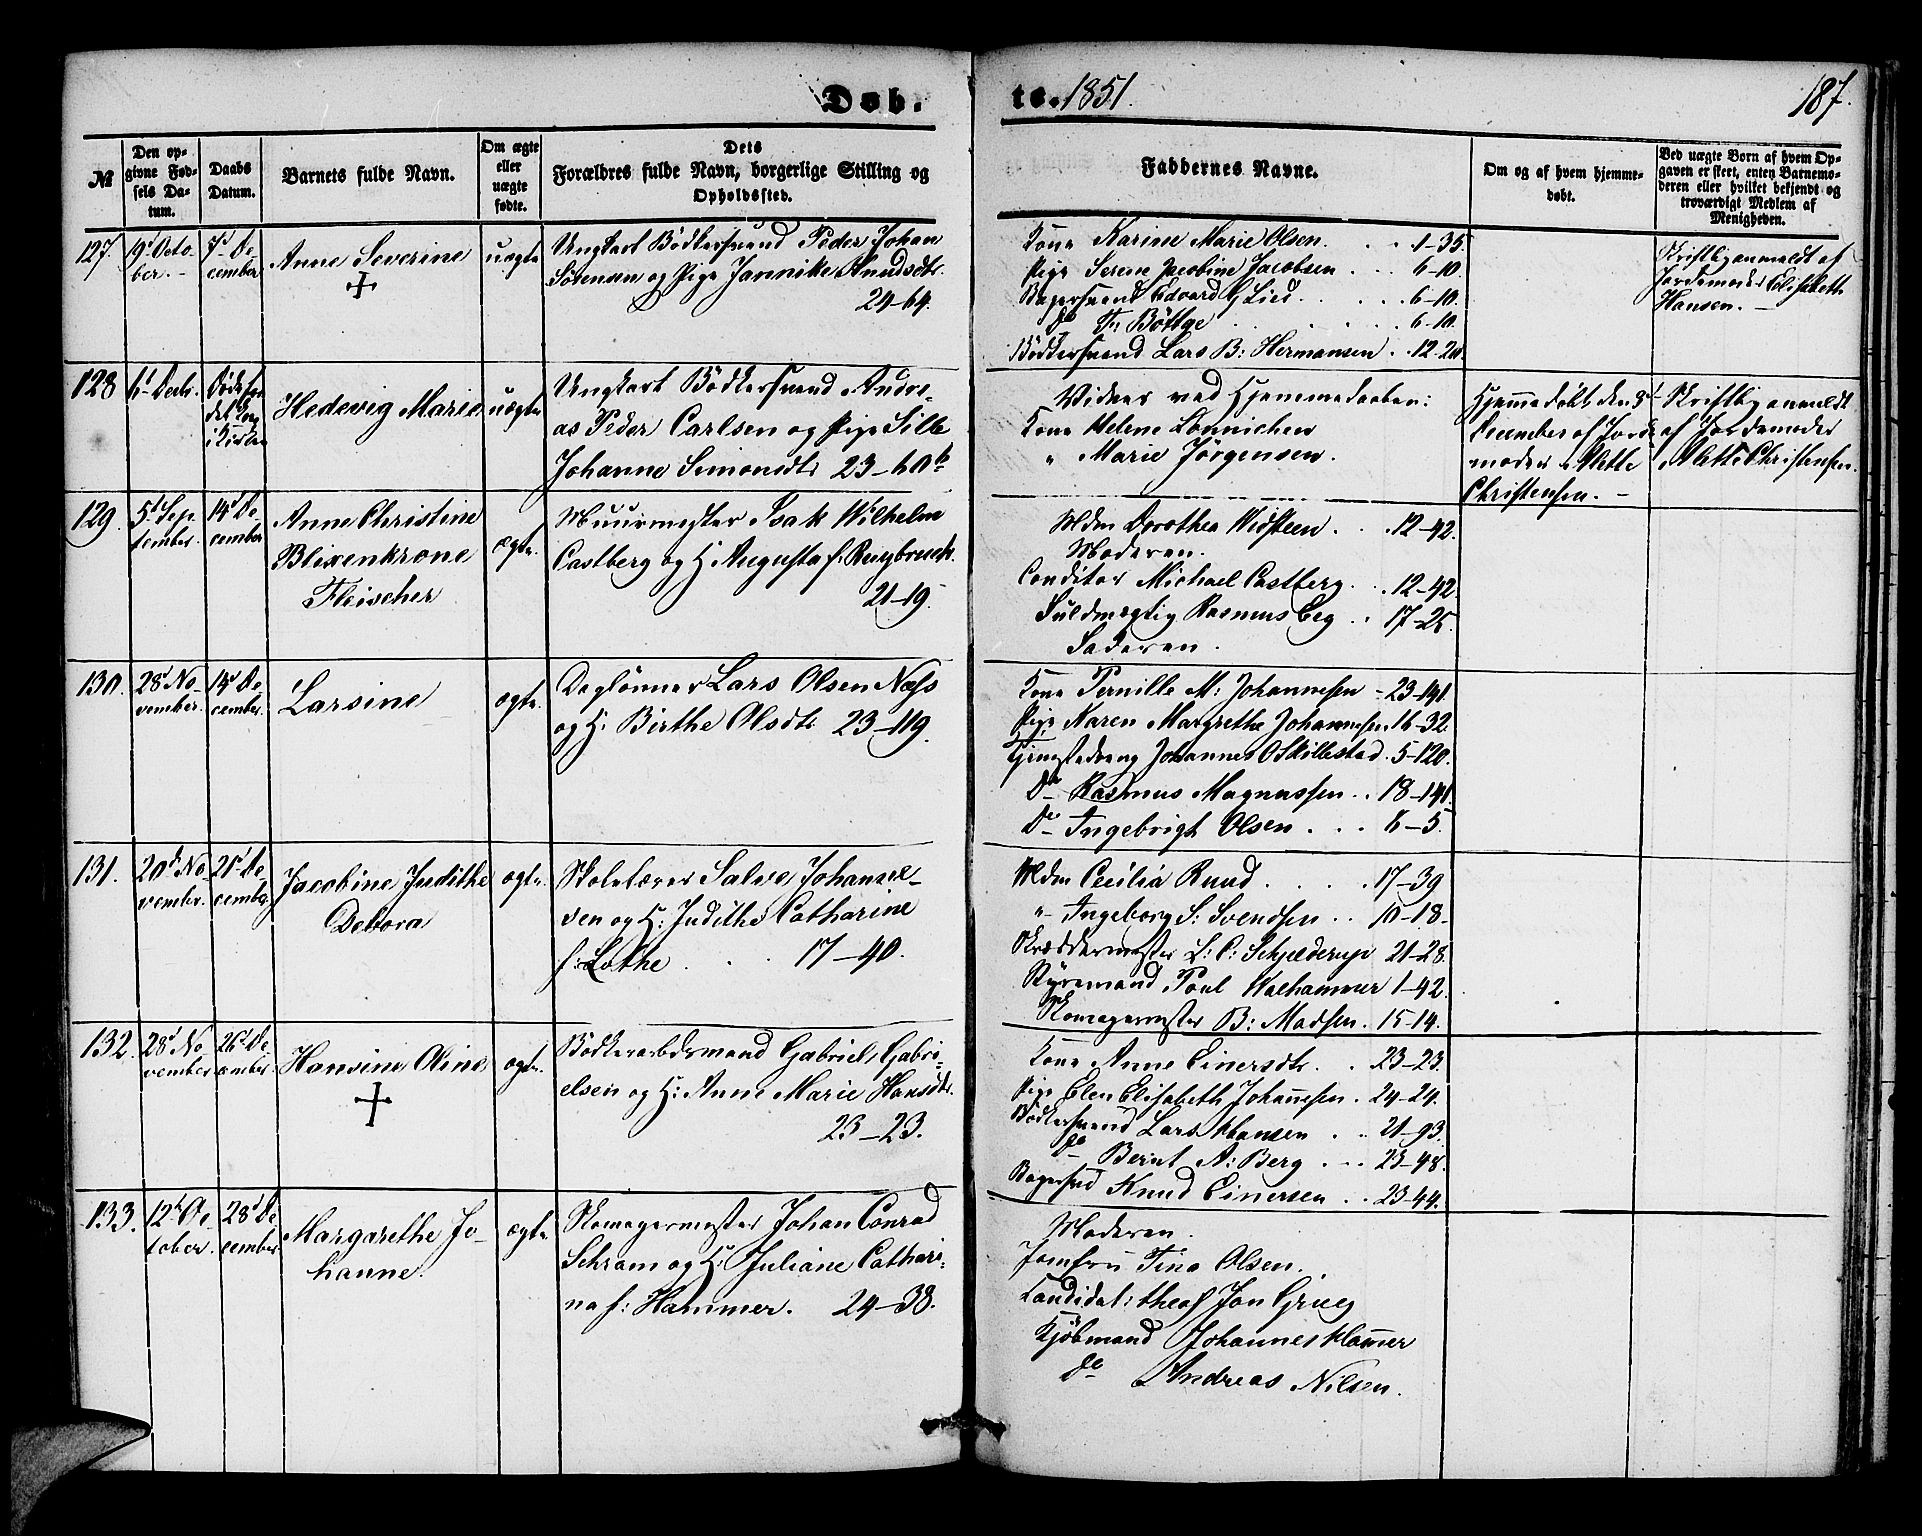 Døb.
te. 1851.
187.
№
Den op-
givne Fød-
sels Da-
tum.
Daabs
Datum.
Barnets fulde Navn.
Om ægte
eller
uægte
fødte.
Dets
Forældres fulde Navn, borgerlige Stilling og
Opholdssted.
Faddernes Navne.
Om og af hvem hjemme-
døbt.
Ved uægte Børn af hvem Op-
gaven er skeet, enten Barnemo-
deren eller hvilket bekjendt og
troværdigt Medlem af
Menigheden.
127.
19d Octo-
ber. -
7d De-
cember
Anne Severine
uægte
Ungkarl Bødkersvend Peder Johan
Sörensen og Pige Jannike Knudsdtr.
24-64.
Kone Karine Marie Olsen. 1-35
Pige Serene Jacobine Jacobsen 6-10.
Bagersvend Edvard G Lied 6-10.
do Fr: Böttge 6-10.
Bödkersvend Lars B: Hermansen 12-20.
Skriftlig anmeldt af
Jordemoder Elisabeth
Hansen. -
128
6d Decbr.
Hedevig Marie
uægte
Ungkarl Bödkersvend Andre-
as Peder Carlsen og Pige Sille
Johanne Simonsdtr 23-60b
Vidner ved Hjemmedaaben:
Kone Helene Lönnichen
" Marie Jörgensen.
Hjemmedöbt den
December af Jorde
moder Mette
Christensen. -
Skriftlig anmeldt
af Jordemoder
Mette Christensen.
129.
5d Sep-
tember.
14d De-
cember
Anne Christine
Blixenkrone
Fleischer
ægte.
Muurmester Isak Wilhelm
Castberg og H. Augusta f.
21-19.
Mdm Dorothea Widsteen 12-42.
Moderen.
Conditor Michael Castberg 12-42.
Fuldmægtig Rasmus Eeg 17-25.
Faderen.
130.
28d No-
vember.
14d De-
cember.
Larsine
ægte.
Daglönner Lars Olsen Næss
og H. Birthe Olsdtr 23-119.
Kone Pernille M: Johannesen - 23-141
Pige Karen Margrethe Johannesen 16-32.
Tjenestedreng Johannes O Skillestad 5-120.
Do Rasmus Magnussen 18-141.
Do Ingebrigt Olsen 8-5.
131.
20d No-
vember.
21d De-
cember
Jacobine Judithe
Debora
ægte.
Skolelærer Salve Johanne-
sen og H: Judithe Catharine
f: Lothe 17-40.
Mdm Cecilia Ruud 17-39
"- Ingeborg S: Svendsen 10-18.
Skræddermester L: C: Schjelderup 21-28.
Styrmand Poul Walhammer 1-42.
Skomagermester B: Madsen. 15-14.
132.
28d No-
vember
26d De-
cember.
Hansine Oline
ægte.
Bödkerarbdsmand Gabriel Gabri-
elsen og H: Anne Marie Hansdtr.
23-23.
Kone Anne Einersdtr. 23-23.
Pige Elen Elisabeth Johannesen 24-24.
Bödkersvend Lars Hansen 21-93.
do Bernt A: Berg 23-48.
Bagersvd Knud Einersen 23-44.
133.
12d Oc-
tober.
28d De-
cember
Margarethe Jo-
hanne.
ægte
Skomagermester Johan Conrad
Schram og H: Juliane Cathari-
na f: Hammer. 24-38.
Moderen.
Jomfru Tina Olsen.
Candidat: theol Jon Grieg
Kjöbmand Johannes Hammer
do Andreas Nilsen.